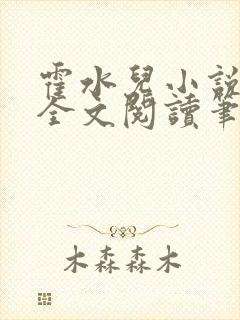 霍水兒小說
全文閱讀筆
木森森木